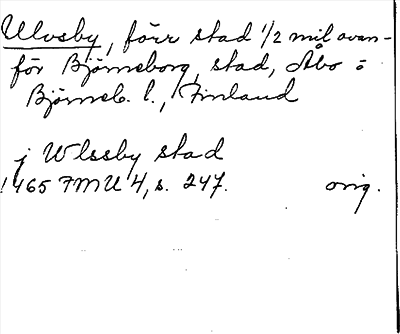 Ulvsby, förr stad 1/2 mil ovan-
för Björneborg, stad, Åbo o
Björneb. l., Finland
j Wlssby stad
1465 FMU 4, s. 247. orig.